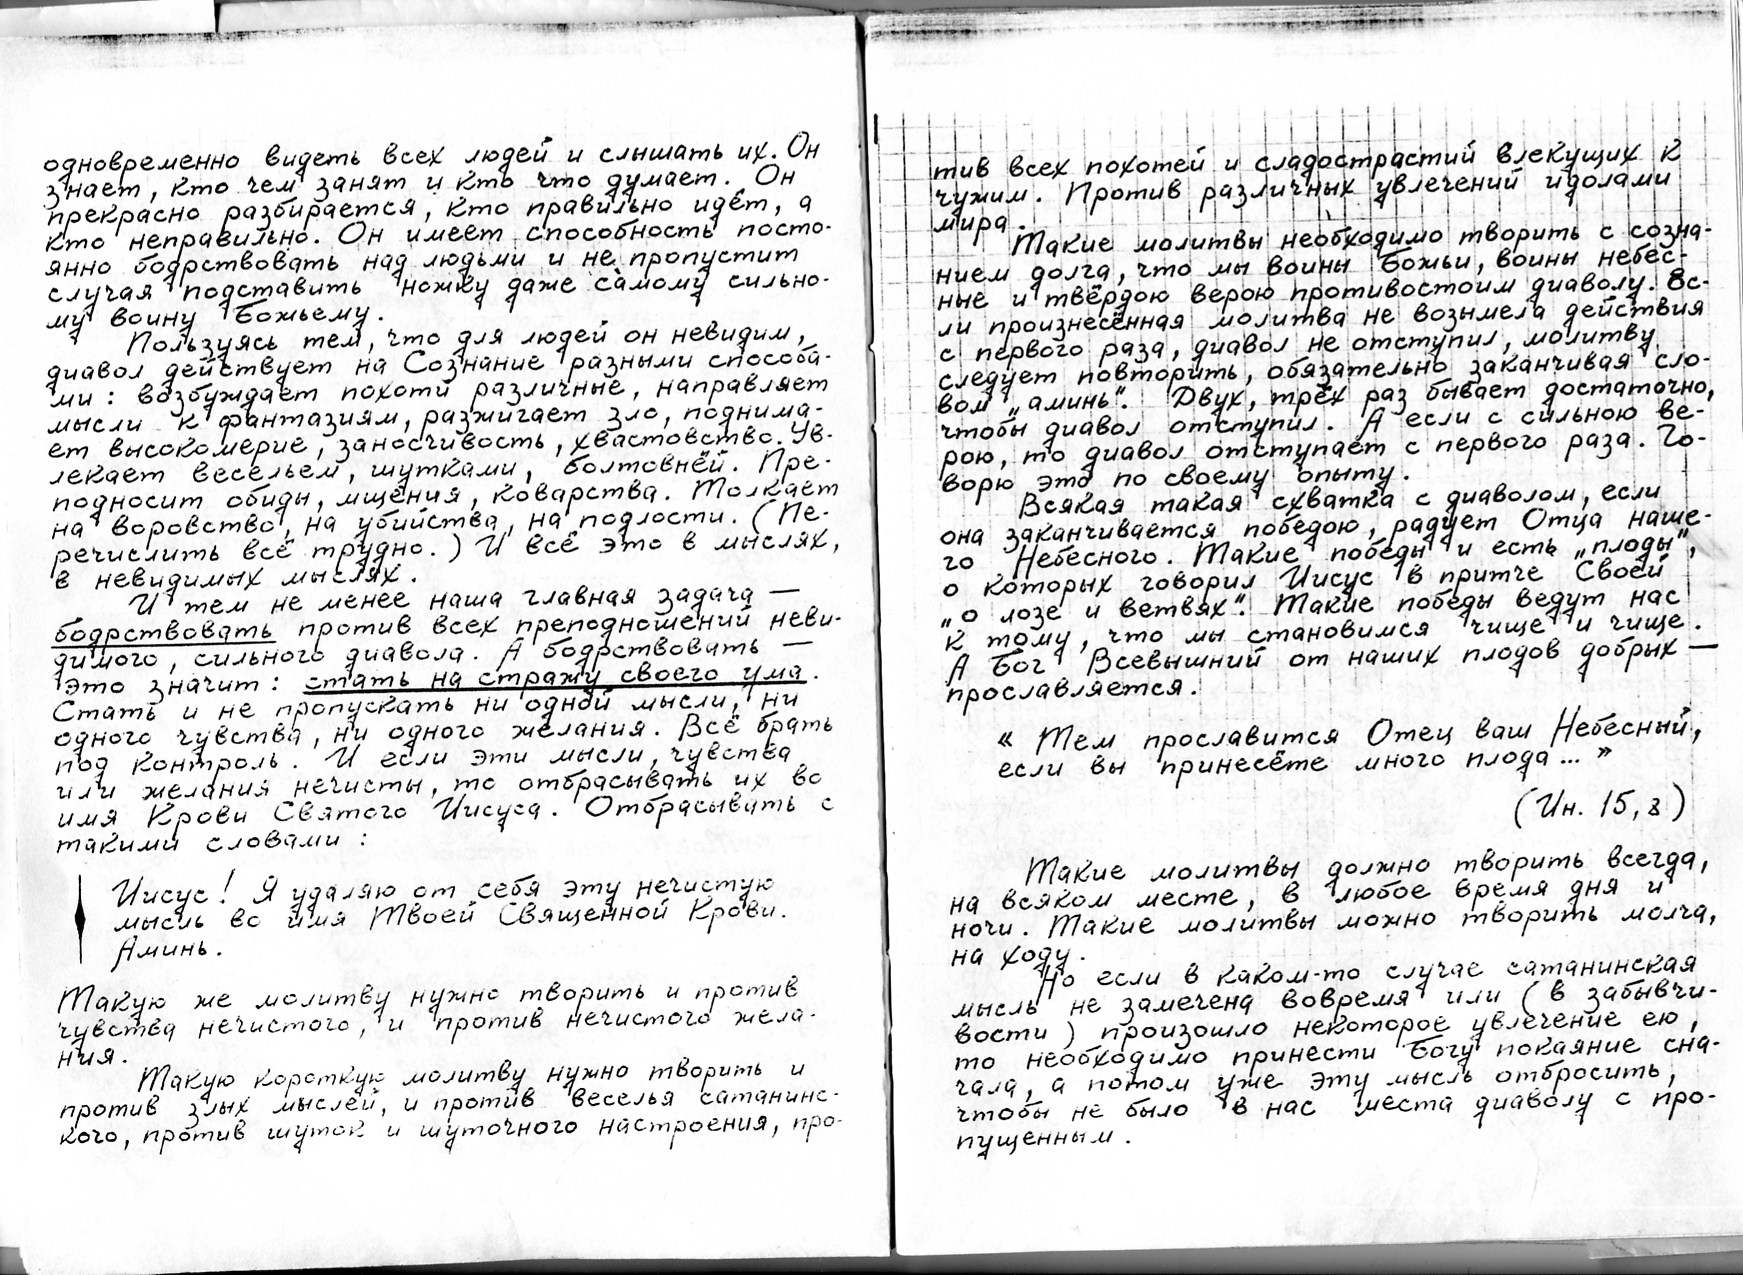 одновременно видеть всех людей и слышать их. Он
знает, кто чем занят и кто что думает. Он
прекрасно разбирается, кто правильно идёт, а
кто неправильно. Он имеет способность посто-
янно бодрствовать над людьми и не пропустит
случая подставить ножку даже самому сильно-
му воину Божьему.
Пользуясь тем, что для людей он невидим,
диавол действует на Сознание разными способа-
ми: возбуждает похоти различные, направляет
мысли к фантазиям, разжигает зло, поднима-
ет высокомерие, заносчивость, хвастовство. Ув-
лекает весельем, шутками, болтовнёй. Пре-
подносит обиды, мщения, коварства. Толкает
на воровство, на убийства, на подлости. (Пе-
речислить всё трудно.) И всё это в мыслях,
в невидимых мыслях.
И тем не менее наша главная задача —
бодрствовать против всех преподношений неви-
димого, сильного диавола. А бодрствовать —
это значит: стать на стражу своего ума.
Стать и не пропускать ни одной мысли, ни
одного чувства, ни одного желания. Всё брать
под контроль. И если эти мысли, чувства
или желания нечисты, то отбрасывать их во
имя Крови Святого Иисуса. Отбрасывать с
такими словами:
Иисус! Я удаляю от себя эту нечистую
мысль во имя Твоей Священной Крови.
Аминь.
Такую же молитву нужно творить и против
чувства нечистого, и против нечистого жела-
ния.
Такую короткую молитву нужно творить и
против злых мыслей, и против веселья сатанинс-
кого, против шуток и шуточного настроения, про-
тив всех похотей и сладострастий влекущих к
чужим. Против различных увлечений идолами
мира.
Такие молитвы необходимо творить с созна-
нием долга, что мы воины Божьи, воины небес-
ные и твёрдою верою противостоим диаволу. Ес-
ли произнесённая молитва не возымела действия
с первого раза, диавол не отступил, молитву
следует повторить, обязательно заканчивая сло-
вом „аминь". Двух, трёх раз бывает достаточно,
чтобы диавол отступил. А если с сильною ве-
рою, то диавол отступает с первого раза. Го-
ворю это по своему опыту.
Всякая такая схватка с диаволом, если
она заканчивается победою, радует Отца наше-
го Небесного. Такие победы и есть „плоды",
о которых говорил Иисус в притче Своей
„о лозе и ветвях". Такие победы ведут нас
к тому, что мы становимся чище и чище.
А Бог Всевышний от наших плодов добрых —
прославляется.
« Тем прославится Отец ваш Небесный,
если вы принесёте много плода... »
(Ин. 15, 8)
Такие молитвы должно творить всегда,
на всяком месте, в любое время дня и
ночи. Такие молитвы можно творить молча,
на ходу.
Но если в каком-то случае сатанинская
мысль не замечена вовремя или (в забывчи-
вости) произошло некоторое увлечение ею,
то необходимо принести Богу покаяние сна-
чала, а потом уже эту мысль отбросить,
чтобы не было в нас места диаволу с про-
пущенным.